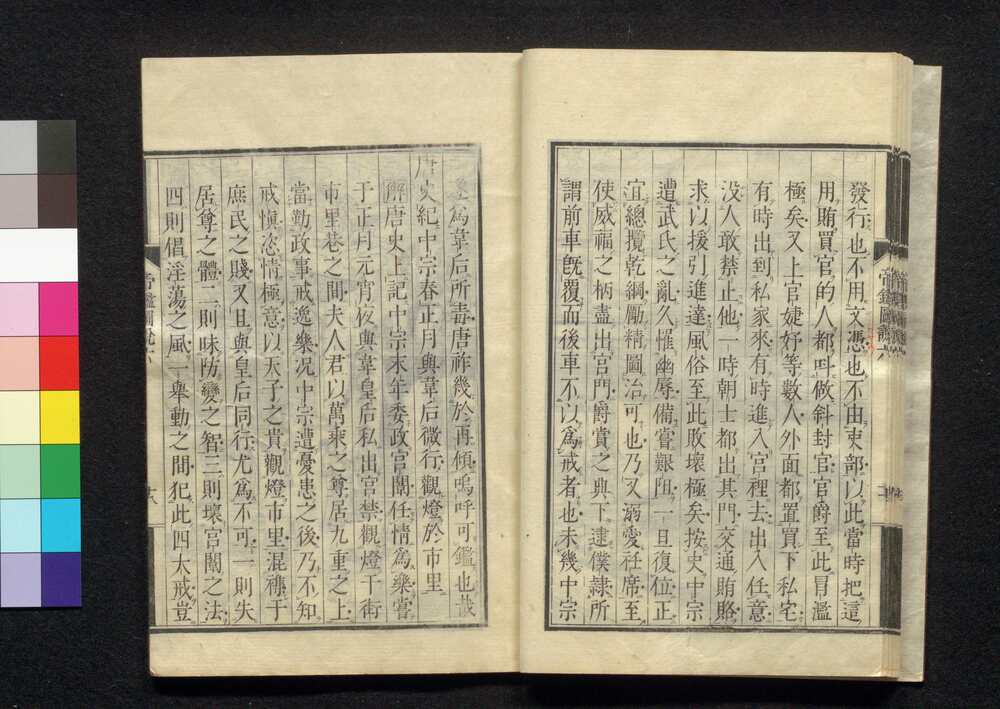 發行也不用文憑也不由吏部以此當時把這
用賄買官的人都呌做斜封官官爵至此冒濫
極矣又上官婕妤等數人外面都置買下私宅
有時出到私家來有時進入宮裡去出入任意
没人敢禁止他一時朝士都出其門交通賄賂
求以援引進達風俗至此敗壞極矣按史中宗
遭武氏之亂久罹幽辱備嘗艱阻一旦復位正
宜總攬乾綱勵精圖治可也乃又溺愛袵席至
使威福之柄盡出宮門爵賞之典下逮僕隷所
謂前車旣覆而後車不以爲戒者也未幾中宗
爲韋后所毒唐祚幾於再傾嗚呼可鑑也哉
唐史紀中宗春正月與韋后微行觀燈於市里
解唐史上記中宗末年委政宮闈任情爲樂嘗
于正月元宵夜與韋皇后私出宮禁觀燈于街
市里巷之間夫人君以萬乘之尊居九重之上
當勤政事戒逸樂况中宗遭憂患之後乃不知
戒愼恣情極意以天子之貴觀燈市里混襍于
庶民之賤又且與皇后同行尤爲不可一則失
居尊之體二則昧防變之智三則壞宮闈之法
四則倡淫蕩之風一舉動之間犯此四大戒豈